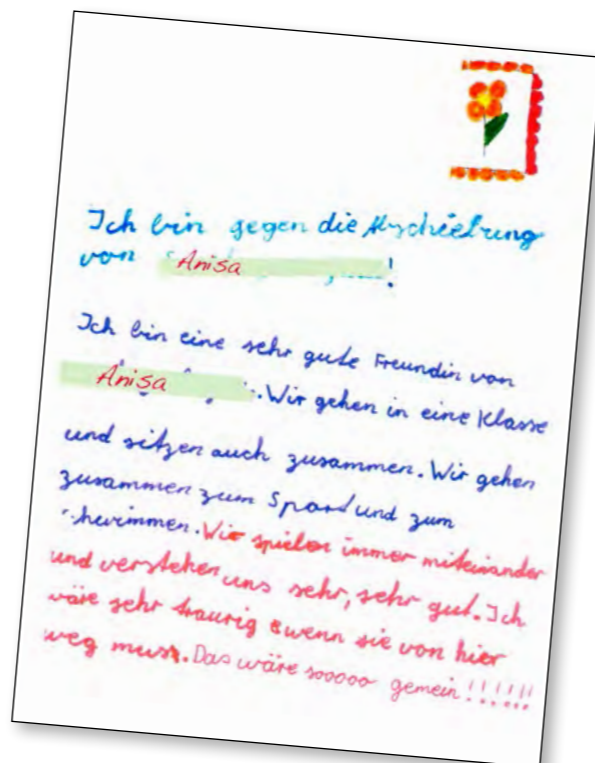 Ich bin gegen die Abschiebung
von Anisa !
Ich bin eine sehr gute Freundin von
Anisa . Wir gehen in eine Klasse
und sitzen auch zusammen. Wir gehen
zusammen zum Spord und zum
schwimmen. Wir spielen immer miteinander
und verstehen uns sehr, sehr gut. Ich
wäre sehr traurig wenn sie von hier
weg muss. Das wäre sooooo gemein !!!!!!